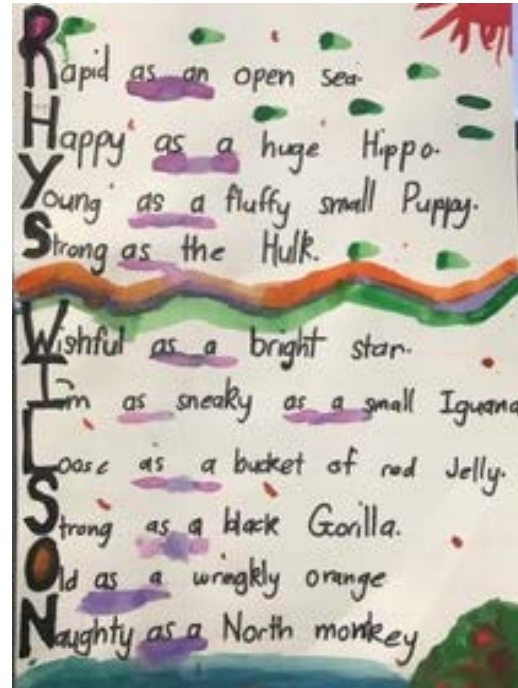 Rapid as an open sea.
Happy as a huge Hippo.
Young as a fluffy small Puppy.
Strong as the Hulk.
Wishful as a bright star.
I'm as sneaky as a small Iguana
Loose as a bucket of red Jelly.
Strong as a black Gorilla.
Old as a wringkly orange
Naughty as a North monkey